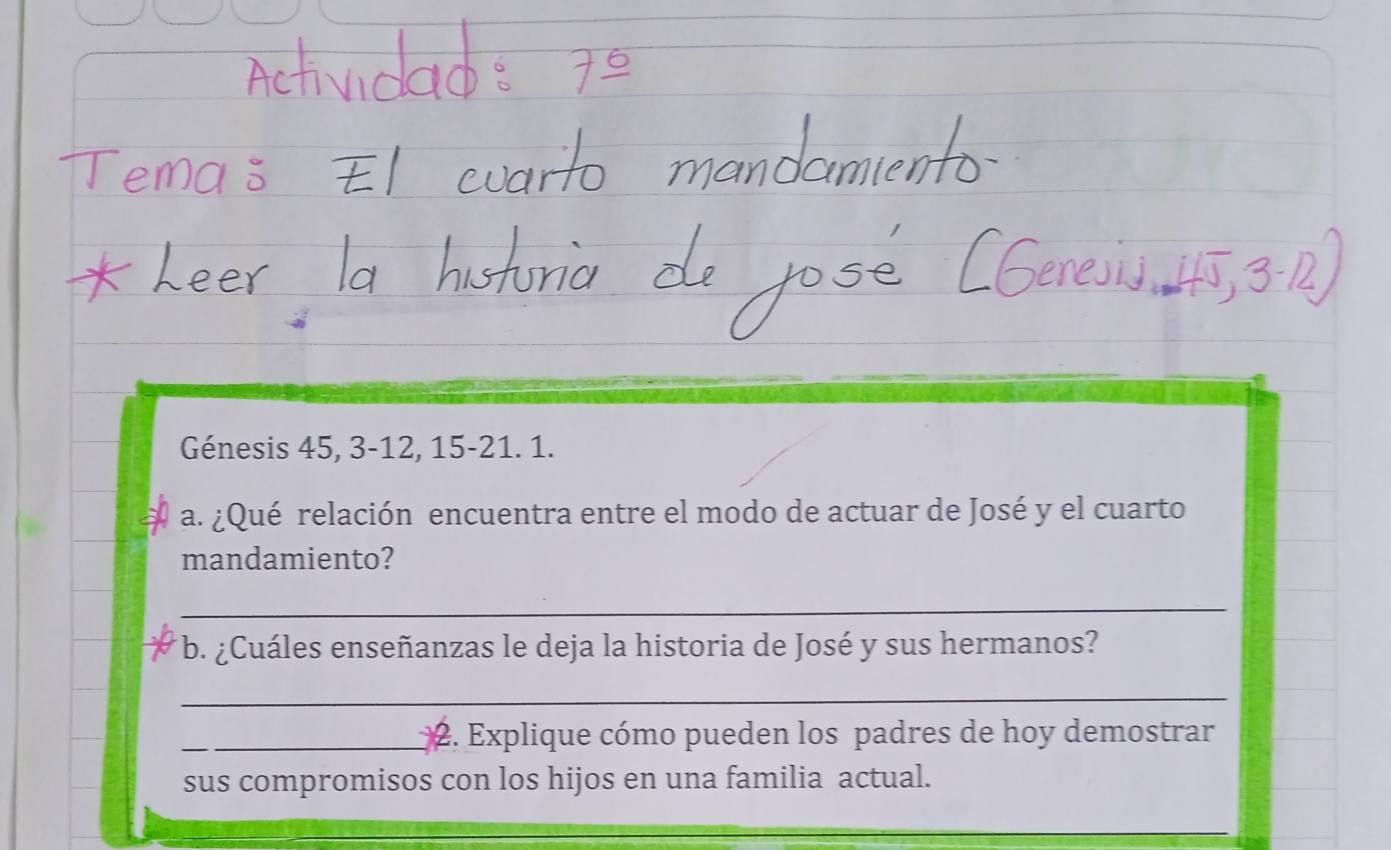 Actividad: 7º
Tema: El cuarto mandamiento
* Leer la historia de josé (Genesis. 45, 3-12)
Génesis 45, 3-12, 15-21. 1.
a. ¿Qué relación encuentra entre el modo de actuar de José y el cuarto
mandamiento?
b. ¿Cuáles enseñanzas le deja la historia de José y sus hermanos?
2. Explique cómo pueden los padres de hoy demostrar
sus compromisos con los hijos en una familia actual.